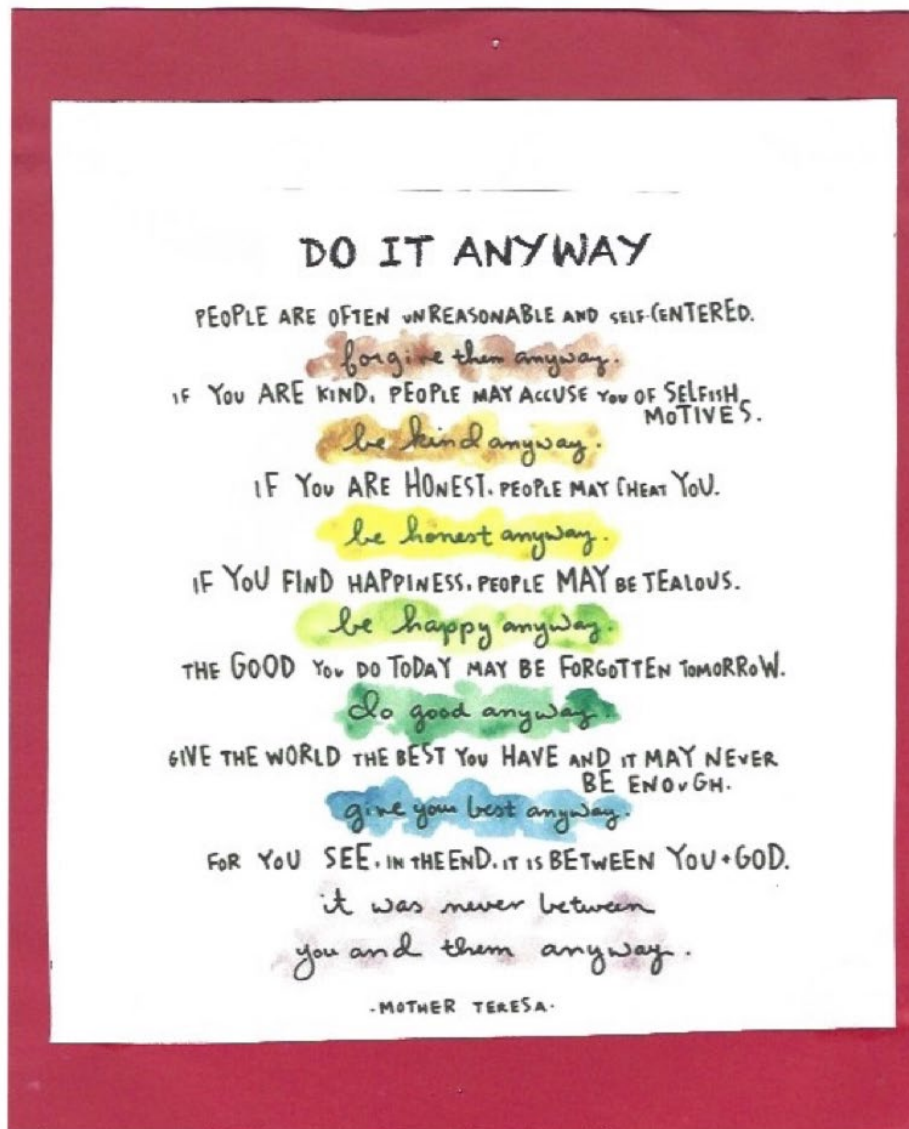 DO IT ANYWAY
PEOPLE ARE OFTEN UNREASONABLE AND SELF-CENTERED.
forgive them anyway.
IF YOU ARE KIND, PEOPLE MAY ACCUSE YOU OF SELFISH
MOTIVES.
be kind anyway.
IF YOU ARE HONEST, PEOPLE MAY CHEAT YOU.
be honest anyway.
IF YOU FIND HAPPINESS, PEOPLE MAY BE JEALOUS.
be happy anyway.
THE GOOD YOU DO TODAY MAY BE FORGOTTEN TOMORROW.
do good anyway.
GIVE THE WORLD THE BEST YOU HAVE AND IT MAY NEVER
BE ENOUGH.
give your best anyway.
FOR YOU SEE, IN THE END, IT IS BETWEEN YOU + GOD.
it was never between
you and them anyway.
-MOTHER TERESA-